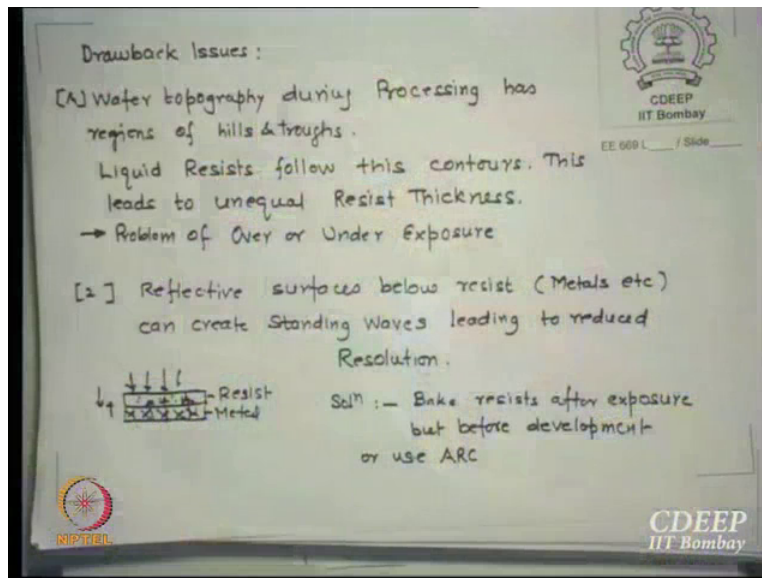 Drawback Issues :
[A] Wafer topography during Processing has
regions of hills & troughs.
Liquid Resists follow this contours. This
leads to unequal Resist Thickness.
→ Problem of Over or Under Exposure
[2] Reflective surfaces below resist (Metals etc)
can create Standing Waves leading to reduced
Resolution.
Resist
Metal
Solⁿ :- Bake resists after exposure
but before development
or use ARC
CDEEP
IIT Bombay
EE 669 L___ / Slide___
NPTEL
CDEEP
IIT Bombay